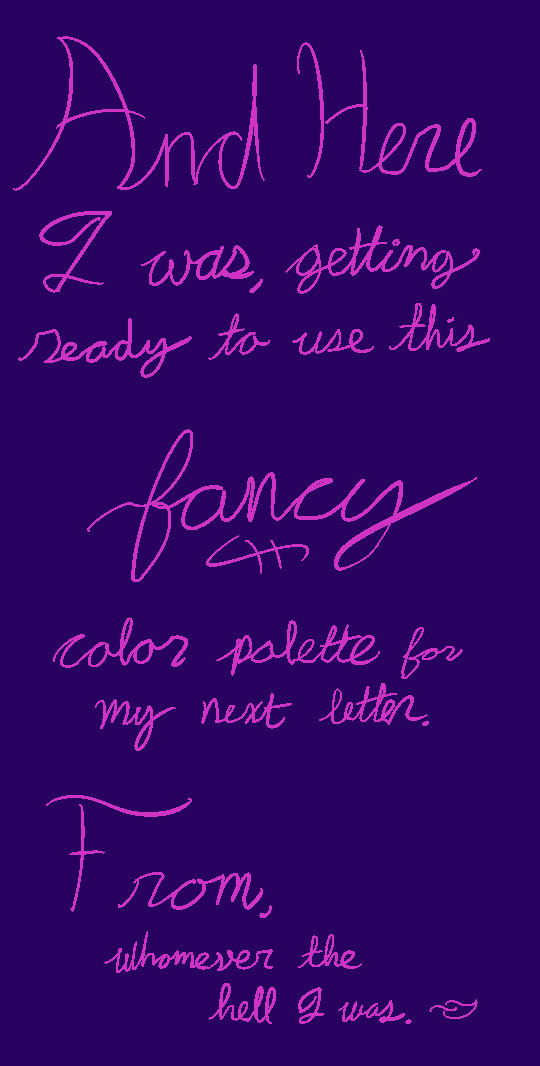 And Here
I was, getting
ready to use this
fancy
color palette for
my next letter.
From,
whomever the
hell I was.